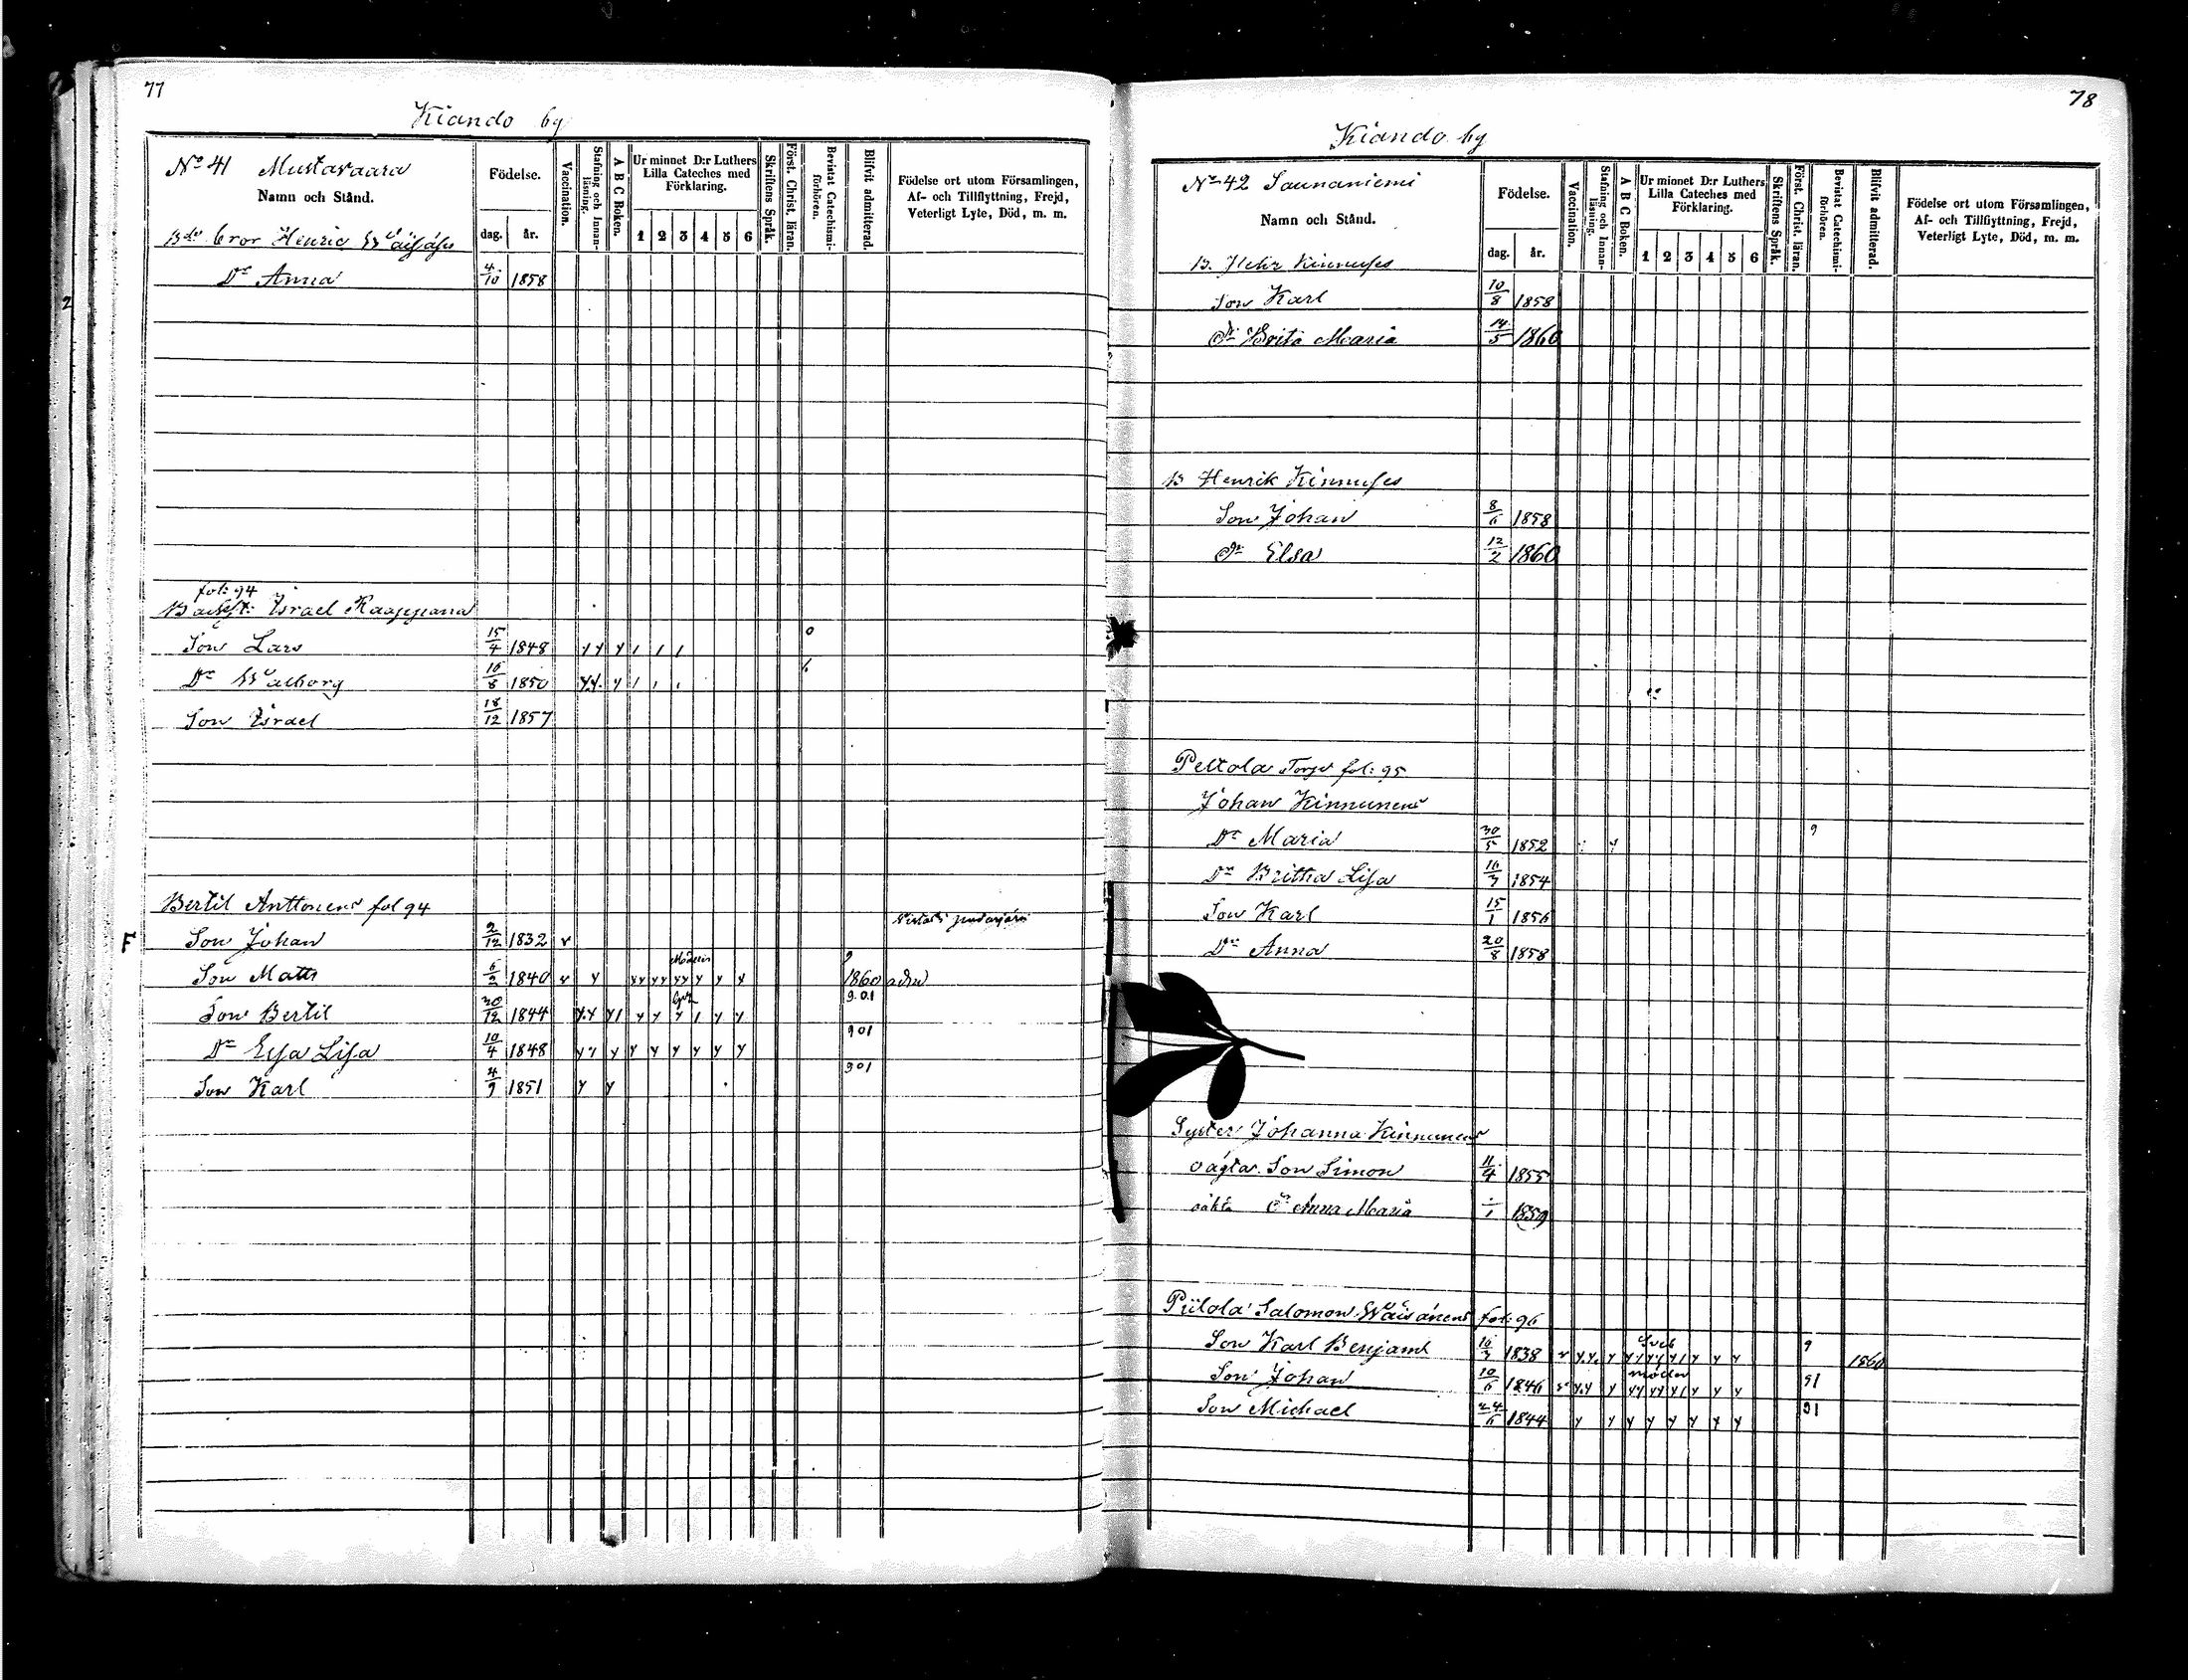 77
Kiando by
No 41 Mustavaara
Namn och Stånd.
Födelse.
dag. år.
Vaccination.
Stafning och Innanläsning.
A B C Boken.
Ur minnet D:r Luthers
Lilla Cateches med
Förklaring.
1 2 3 4 5 6
Skriftens Språk.
Först. Christ. läran.
Bevistat Catechismiförhören.
Blifvit admitterad.
Födelse ort utom Församlingen,
Af- och Tillflyttning, Frejd,
Veterligt Lyte, Död, m. m.
bror Henric
Dr Anna 4/10 1858
fol: 94
Israel Kaappana
Son Lars 15/4 1848
Dr Walborg 16/8 1850
Son Israel 18/12 1857
Bertil Anttonens fol 94
Son Johan 2/12 1832
Son Matts 1840 1860
Son Bertil 30/12 1844 9.01
Dr Elsa Lisa 10/4 1848 901
Son Karl 4/9 1851 901
78
Kiando by
No 42 Saunaniemi
Namn och Stånd.
Födelse.
dag. år.
Vaccination.
Stafning och Innanläsning.
A B C Boken.
Ur minnet D:r Luthers
Lilla Cateches med
Förklaring.
1 2 3 4 5 6
Skriftens Språk.
Först. Christ. läran.
Bevistat Catechismiförhören.
Blifvit admitterad.
Födelse ort utom Församlingen,
Af- och Tillflyttning, Frejd,
Veterligt Lyte, Död, m. m.
Son Karl 10/8 1858
Dr Brita Maria 14/5 1860
B Henrik Kinnuses
Son Johan 8/6 1858
Dr Elsa 12/2 1860
Peltola Torp fol: 95
Johan Kinnunens
Dr Maria 30/5 1852 9
Dr Britha Lisa 16/3 1854
Son Karl 15/1 1856
Dr Anna 20/8 1858
Syster Johanna Kinnunens
oägta Son Simon 11/4 1855
oäkta Dr Anna Maria 1859
Piilola Salomon Wäisänens fol: 96
Son Karl Benjam 16/3 1838 9 1860
Son Johan 10/6 1846 91
Son Michael 24/6 1844 91